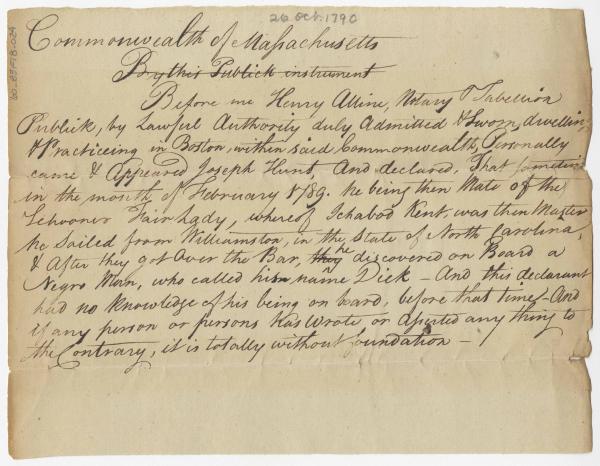 26 Oct. 1790
Commonwealth of Massachusetts
By this Publick instrument
Before me Henry Alline, Notary & Tabellion
Publick, by Lawful Authority duly Admitted & Sworn, dwelling
& Practiceing in Boston, within said Commonwealth, Personally
came & Appeared Joseph Hunt, And declared, That sometime
in the month of February 1789. he being then Mate of the
Schooner Fair Lady, whereof Ichabod Kent, was then Master
he Sailed from Williamston, in the State of North Carolina,
& After they got over the Bar, they he discovered on Board a
Negro Man, who called his name Dick — And this declarant
had no knowledge of his being on board, before that time — And
if any person or persons has wrote, or aserted any thing to
the Contrary, it is totally without foundation —